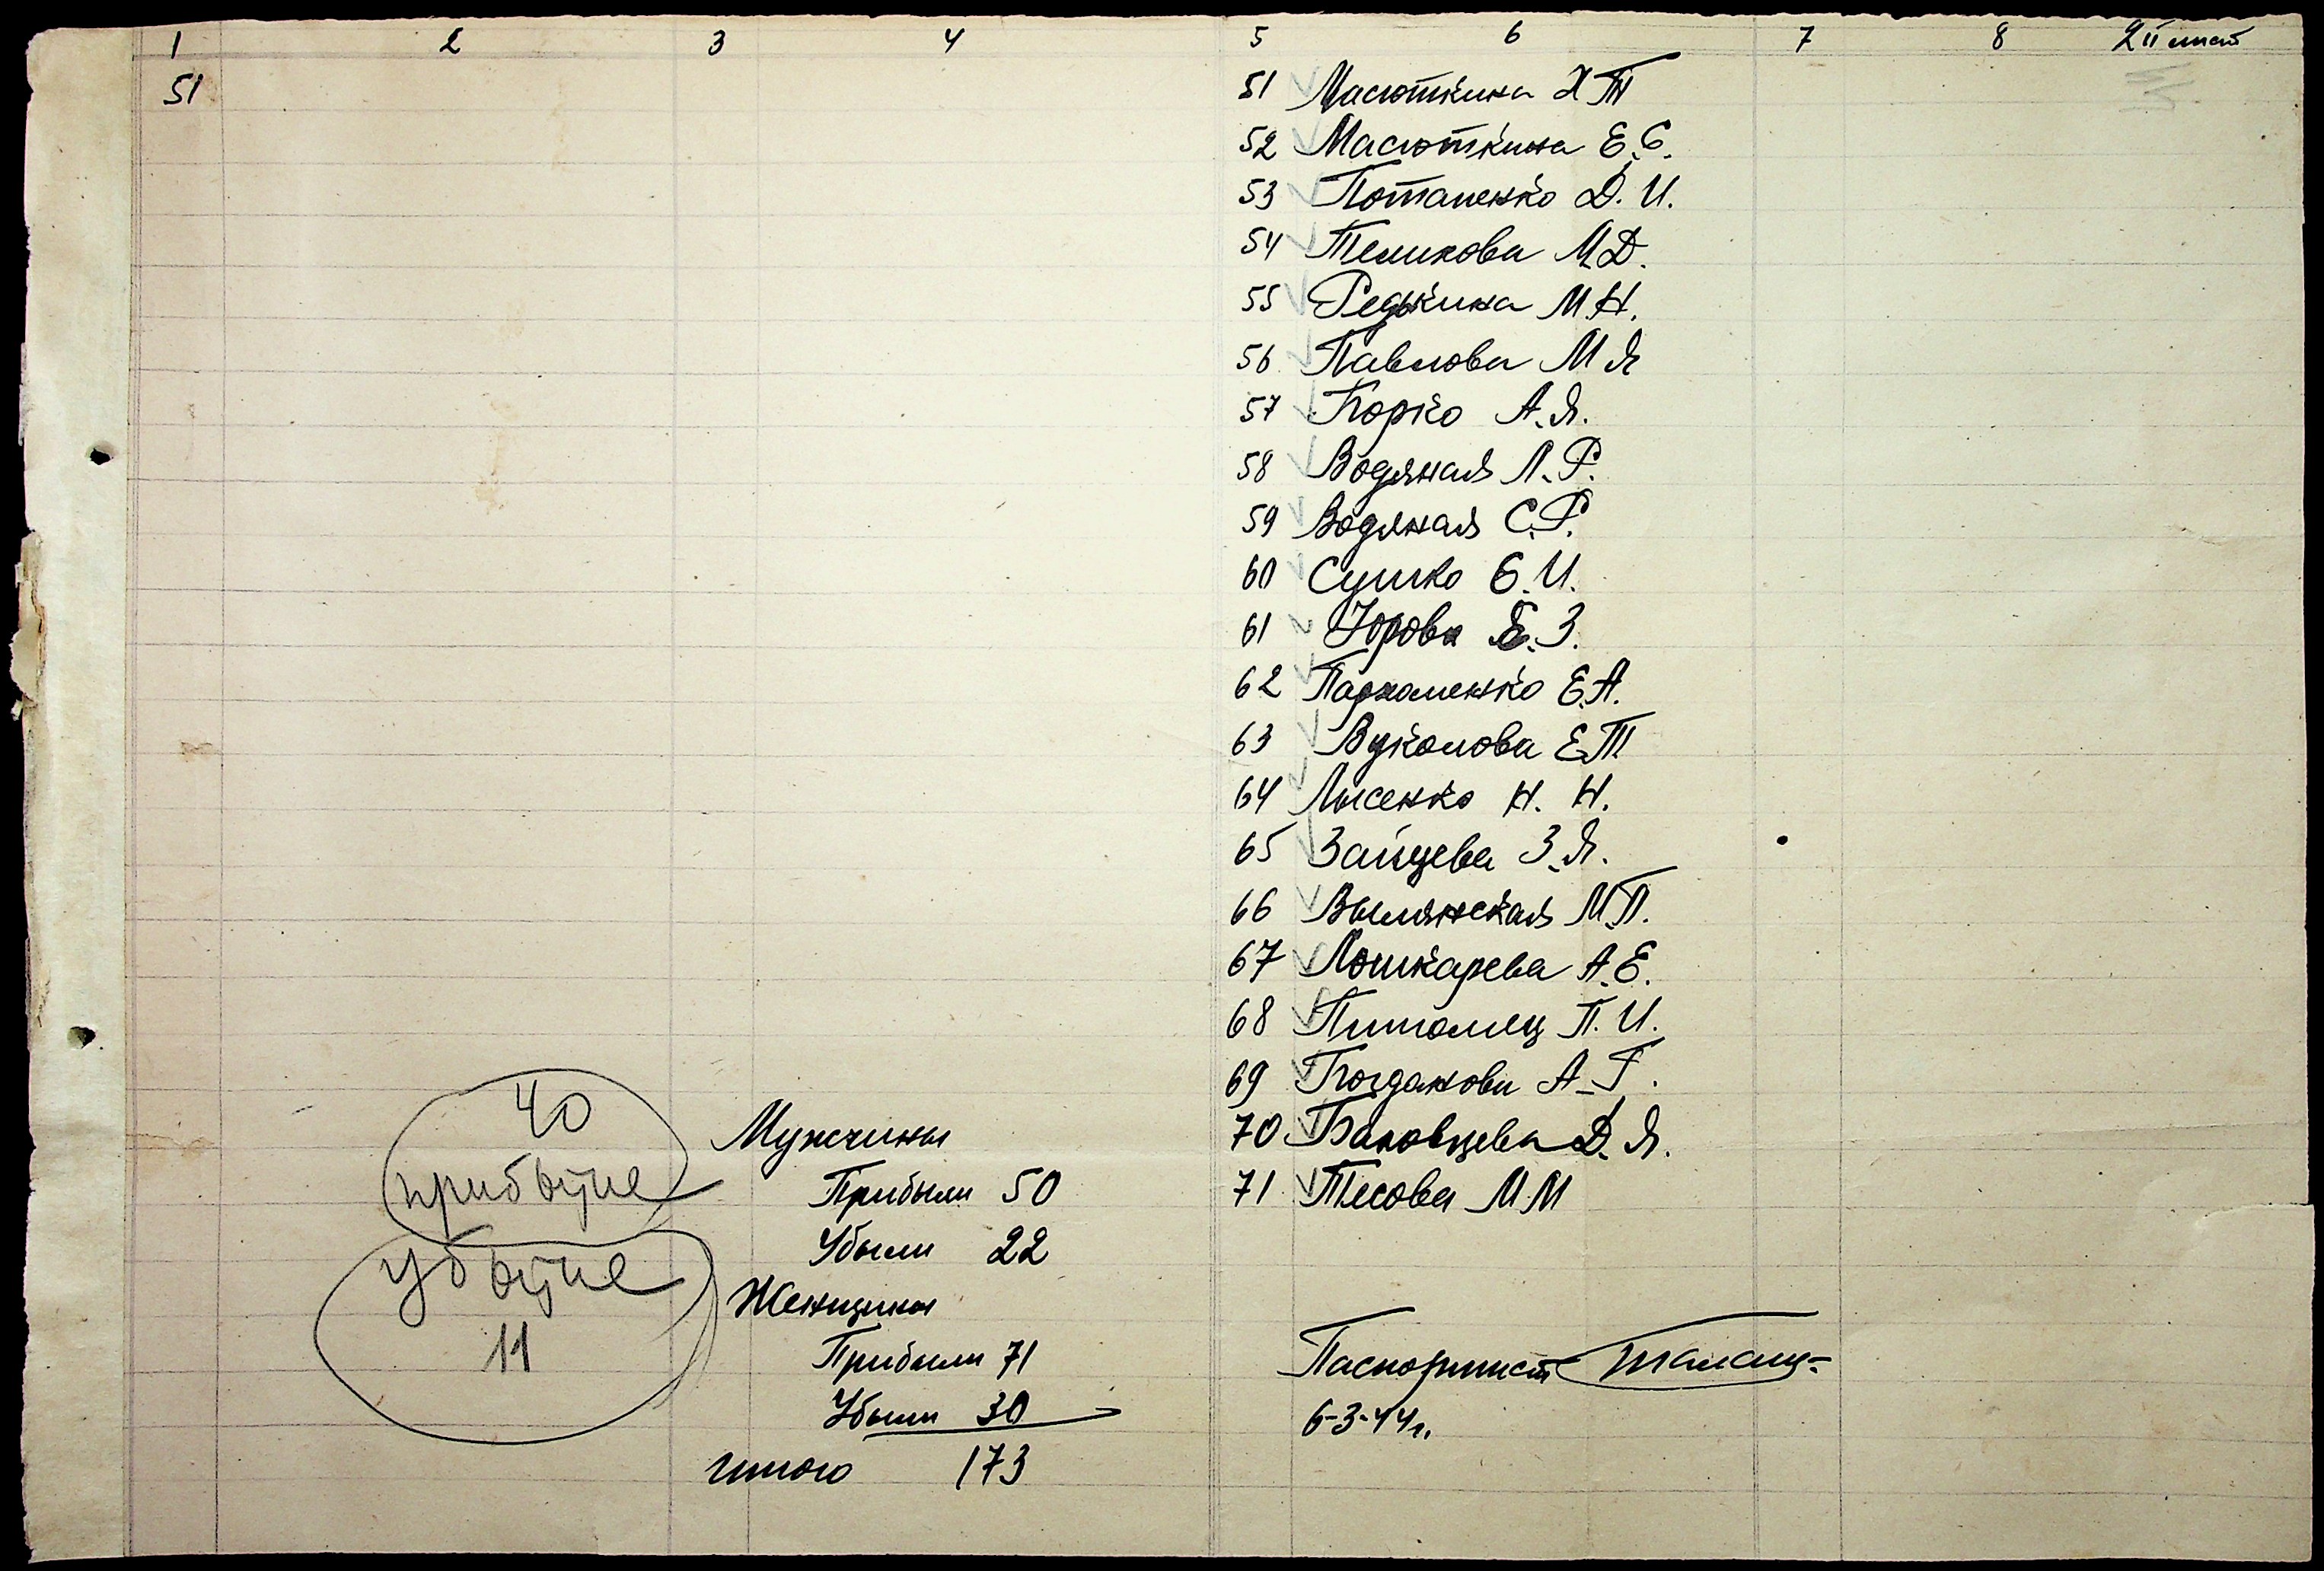 1 2 3 4 5 6 7 8 2й лист
51
51 Масюткина Х Т
52 Масюткина Е. С.
53 Потапенко Д. И.
54 Теликова М.Д.
55 Редькина М.Н.
56 Павлова М Я
57 Борко А.Я.
58 Водяная Л.Р.
59 Водяная С.Р.
60 Сушко Е.И.
61 Юрова Е.З.
62 Пархоменко Е.А.
63 Вуколова Е.Т
64 Лысенко Н. Н.
65 Зайцева З.Я.
66 Вылянская М.П.
67 Лошкарева А.Е.
68 Питомец П. И.
69 Богданова А.Г.
70 Баковцева Д. Я.
71 Тесова М.М
40
прибытие
убытие
11
Мужчины
Прибыли 50
Убыли 22
Женщины
Прибыли 71
Убыли 30
итого 173
Паспортист
6-3-44г.